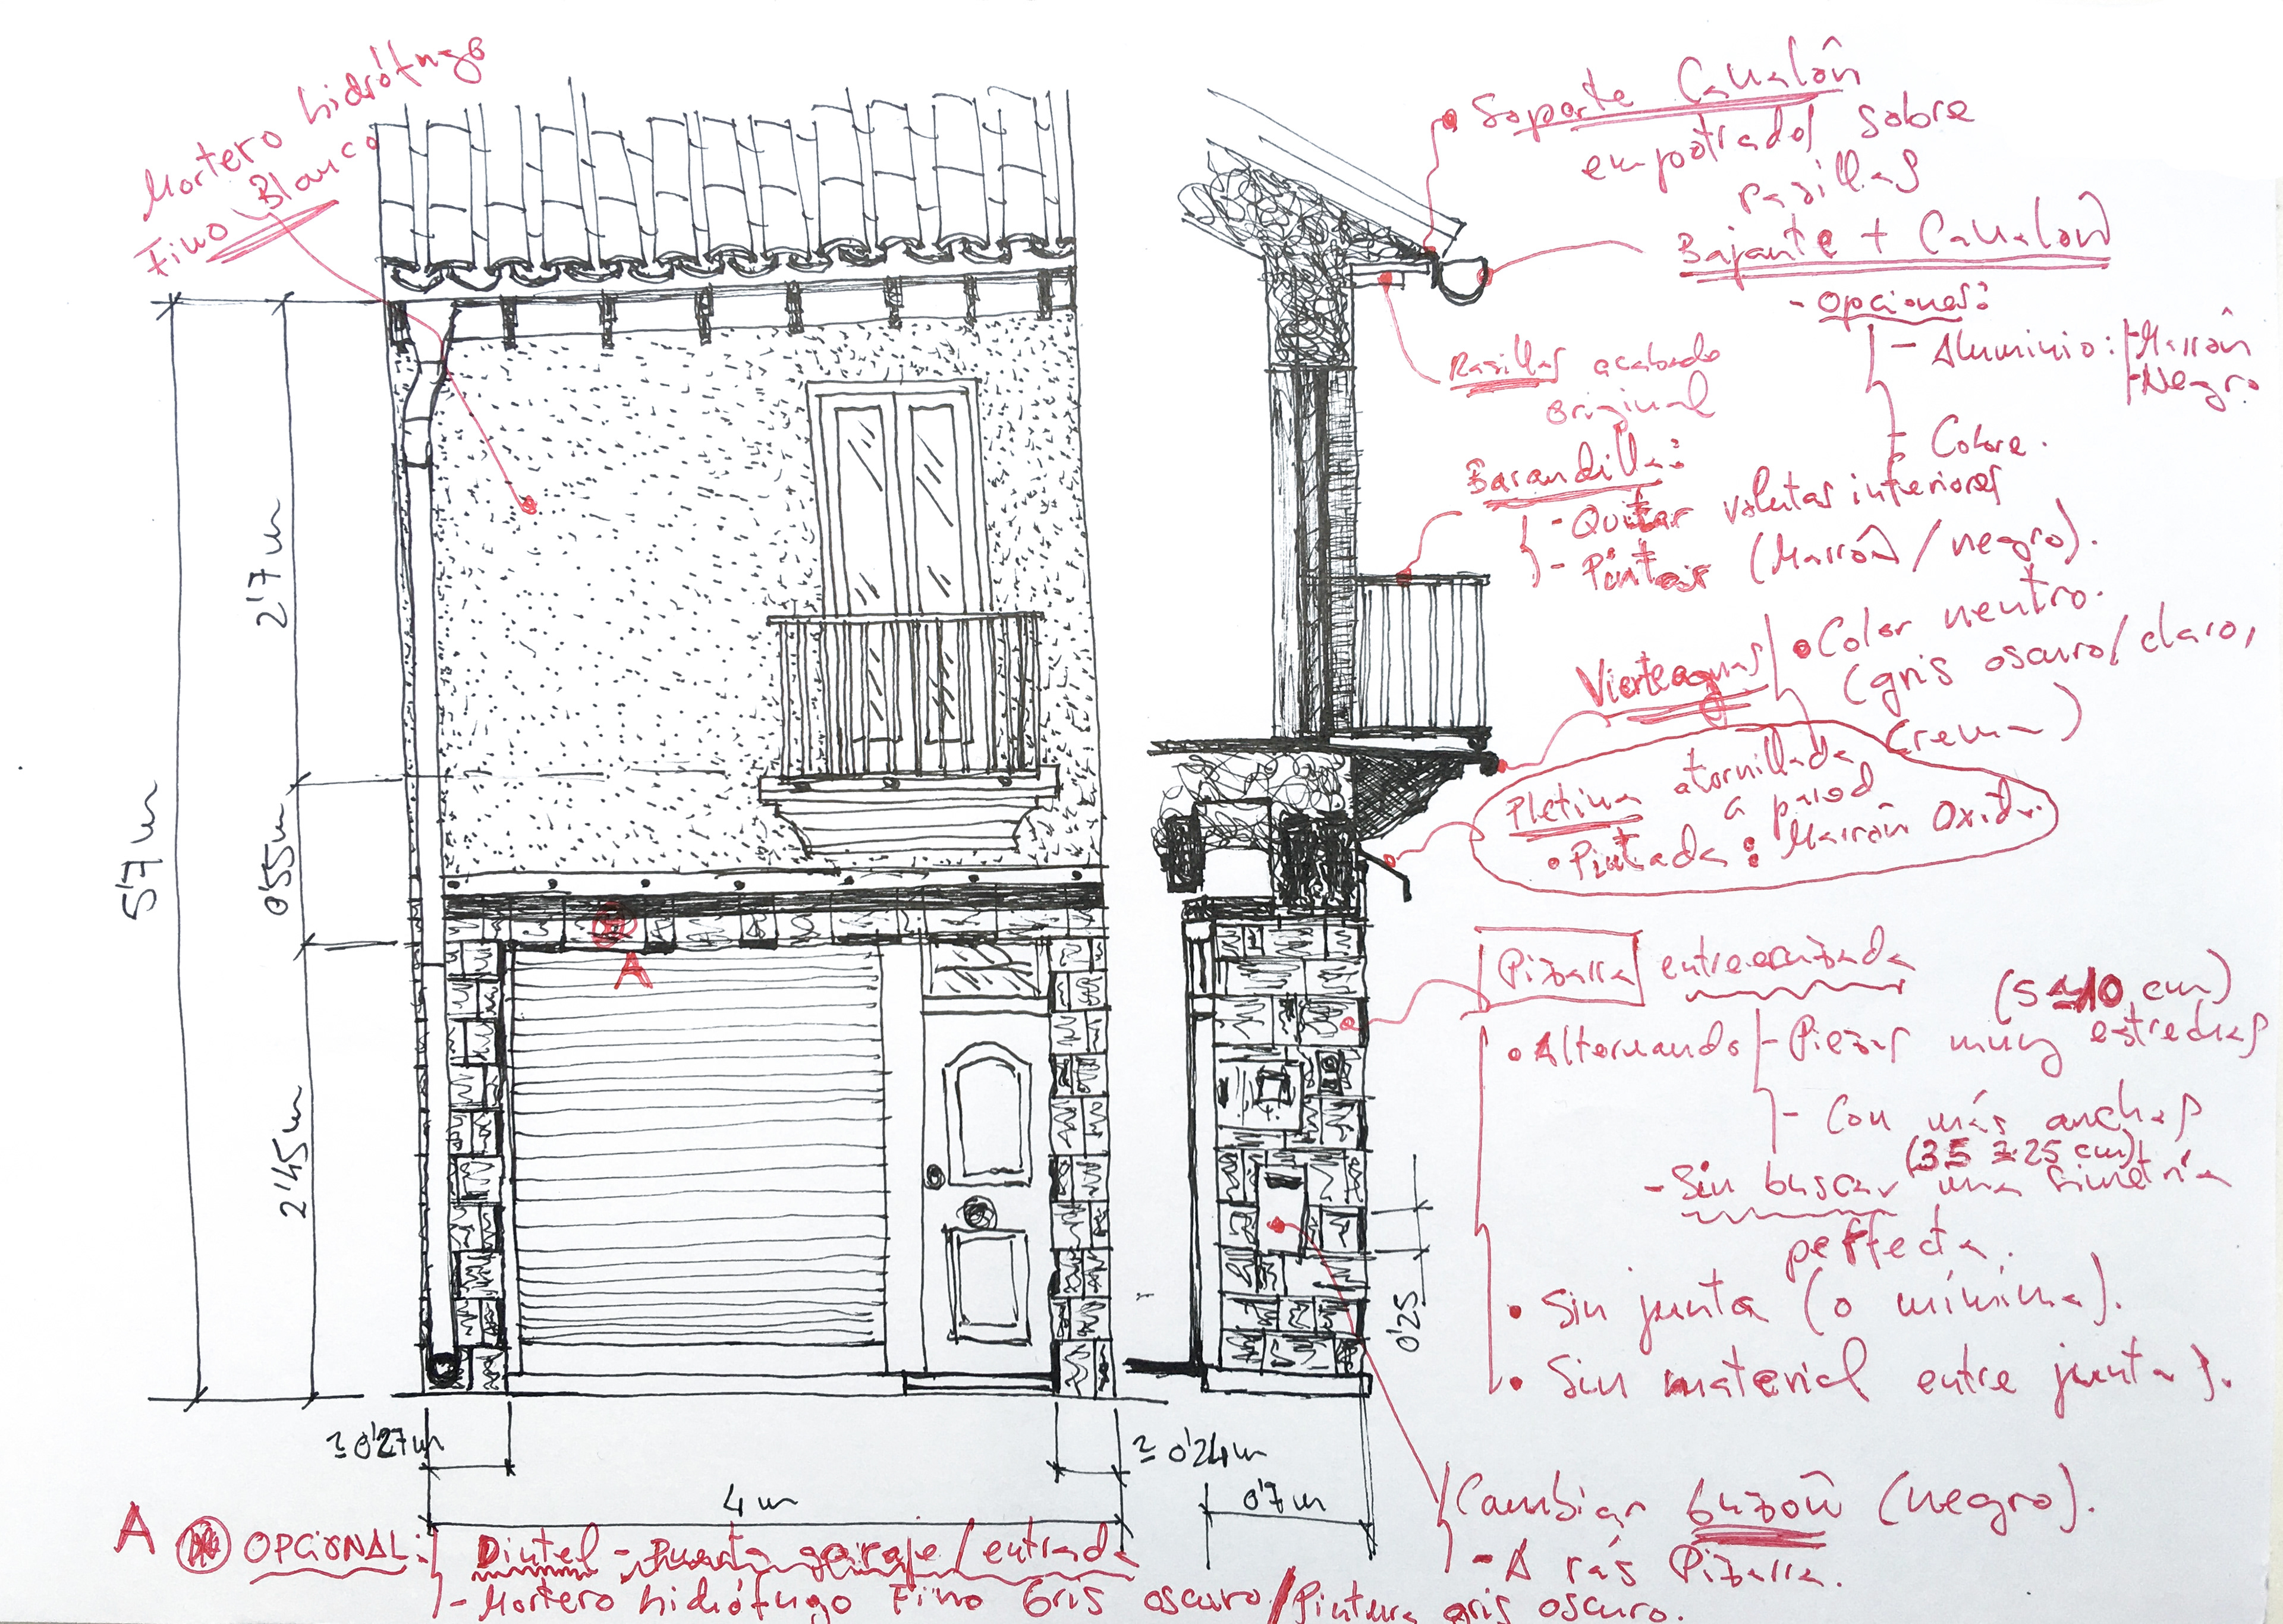 Mortero hidrófugo
Fino Blanco
5'7 m
2'7 m
0'55 m
2'45 m
≃ 0'27 m
4 m
≃ 0'24 m
0'7 m
0'25
A
• Soporte Canalón
empotrados sobre
rasillas
Bajante + Canalón
- Opciones:
- Aluminio: - Marrón
- Negro
- Cobre.
Rasillas acabado
original
Barandilla:
- Quitar volutas inferiores
- Pintar (Marrón / negro).
Vierteaguas
• Color neutro.
(gris oscuro / claro,
crema)
Pletina atornillada
a pared
• Pintada: Marrón Oxido.
Pizarra entrecruzada
• Alternando - Piezas muy estrechas
(5 10 cm)
- Con más anchas
(35 25 cm)
- Sin buscar una simetría
perfecta.
• Sin junta (o mínima).
• Sin material entre juntas.
Cambiar buzón (negro).
- A rás Pizarra.
A OPCIONAL: Dintel - Puerta garaje / entrada
- Mortero hidrófugo Fino Gris oscuro / Pintura gris oscuro.